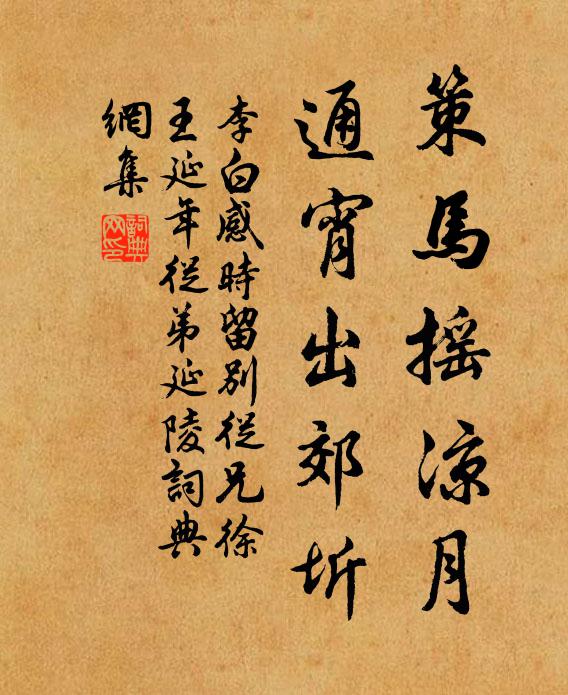 策馬摇涼月
通宵出郊圻
李白感時留别從兄徐
王延年從弟延陵詞典
網集
詞典网印